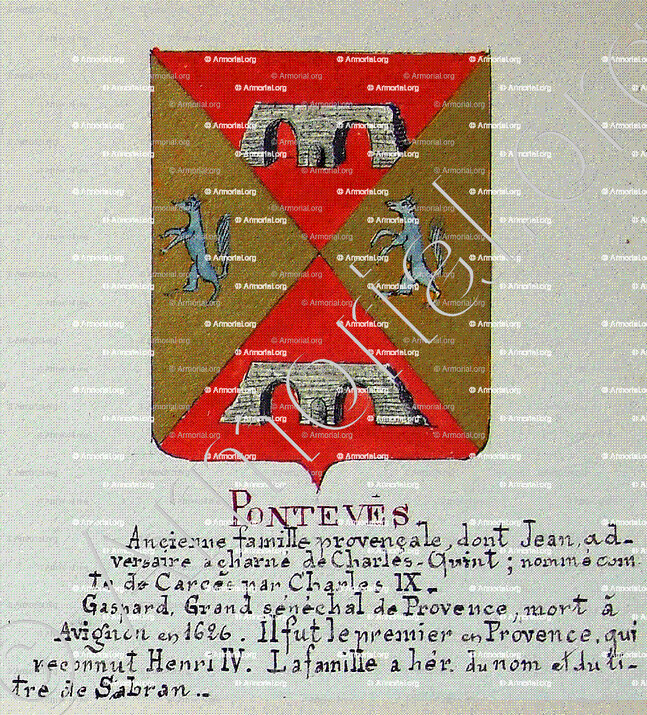 PONTEVÉS
Ancienne famille provençale, dont Jean, ad-
versaire acharné de Charles-Quint ; nommé com-
te de Carcès par Charles IX.
Gaspard, Grand sénéchal de Provence, mort à
Avignon en 1626. Il fut le premier en Provence, qui
reconnut Henri IV. La famille a hér. du nom et du ti-
tre de Sabran.
© Armorial.org